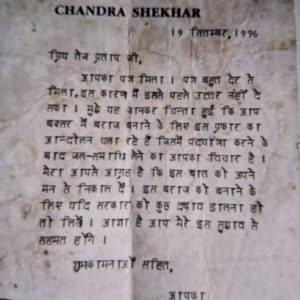 CHANDRA SHEKHAR
19 सितम्बर, 1996
प्रिय तेज प्रताप जी,
आपका पत्र मिला । पत्र बहुत देर से
मिला, इस कारण मैं इससे पहले उत्तर नहीं दे
सका । मुझे यह जानकर चिन्ता हुई कि आप
बक्सर में बराज बनाने के लिए इस प्रकार का
आन्दोलन चला रहे हैं जिसमें पदयात्रा करने के
बाद जल-समाधि लेने का आपका विचार है ।
मेरा आपसे आग्रह है कि इस बात को अपने
मन से निकाल दें । इस बराज को बनाने के
लिए यदि सरकार को कुछ दबाव डालना हो
तो लिखें । आशा है आप मेरे इस सुझाव से
सहमत होंगे ।
शुभकामनाओं सहित,
आपका